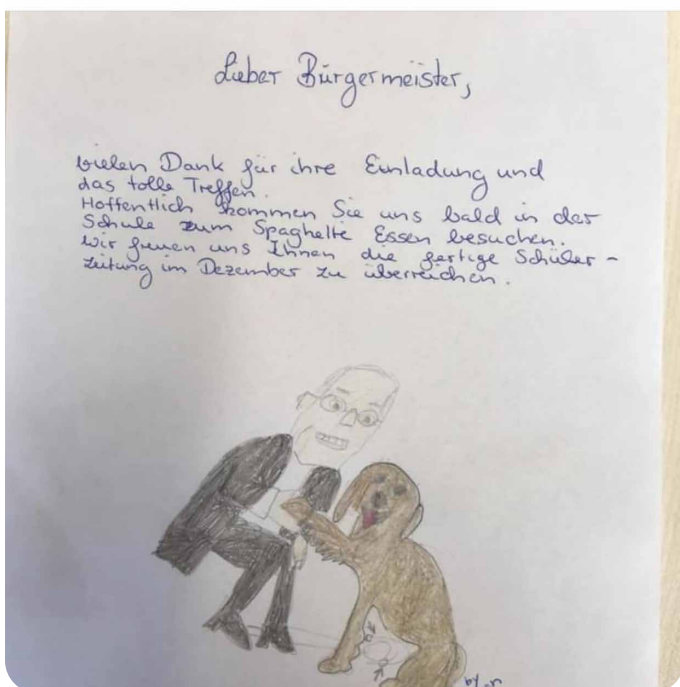 Lieber Bürgermeister,
vielen Dank für ihre Einladung und
das tolle Treffen.
Hoffentlich kommen Sie uns bald in der
Schule zum Spaghelte Essen besuchen.
Wir freuen uns Ihnen die fertige Schüler-
zeitung im Dezember zu überreichen.
by